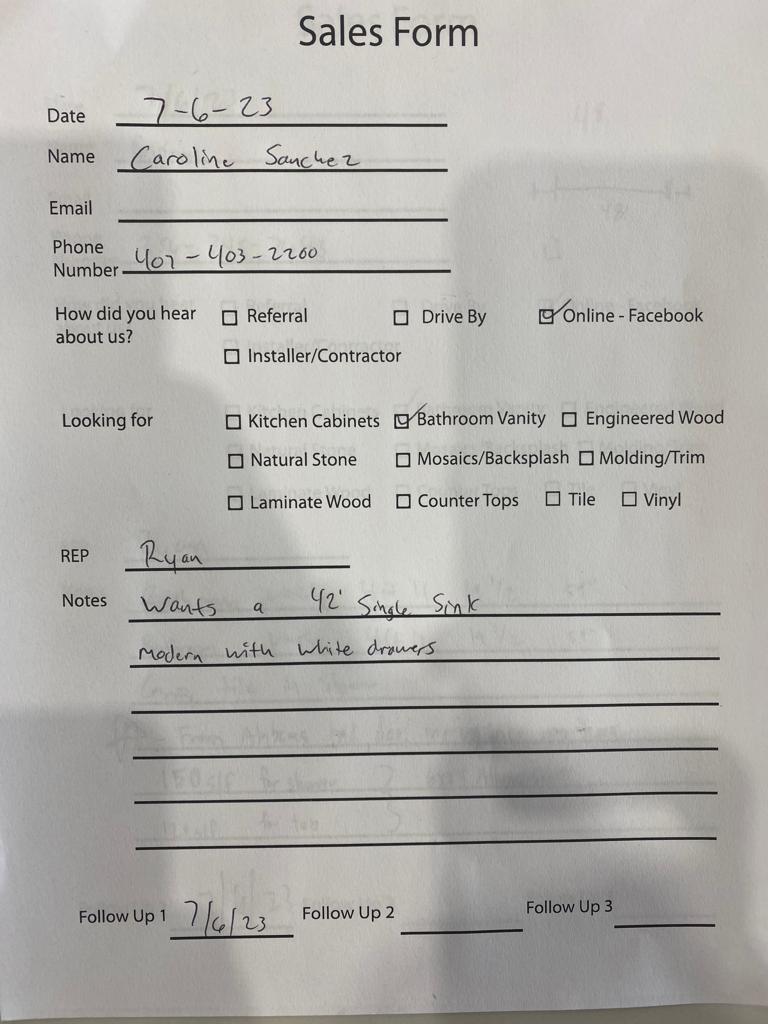 Sales Form
Date 7-6-23
Name Caroline Sanchez
Email
Phone
Number 407-403-2200
How did you hear ☐ Referral ☐ Drive By ☑ Online - Facebook
about us?
☐ Installer/Contractor
Looking for ☐ Kitchen Cabinets ☑ Bathroom Vanity ☐ Engineered Wood
☐ Natural Stone ☐ Mosaics/Backsplash ☐ Molding/Trim
☐ Laminate Wood ☐ Counter Tops ☐ Tile ☐ Vinyl
REP Ryan
Notes Wants a 42' Single Sink
Modern with white drawers
Follow Up 1 7/6/23 Follow Up 2 Follow Up 3